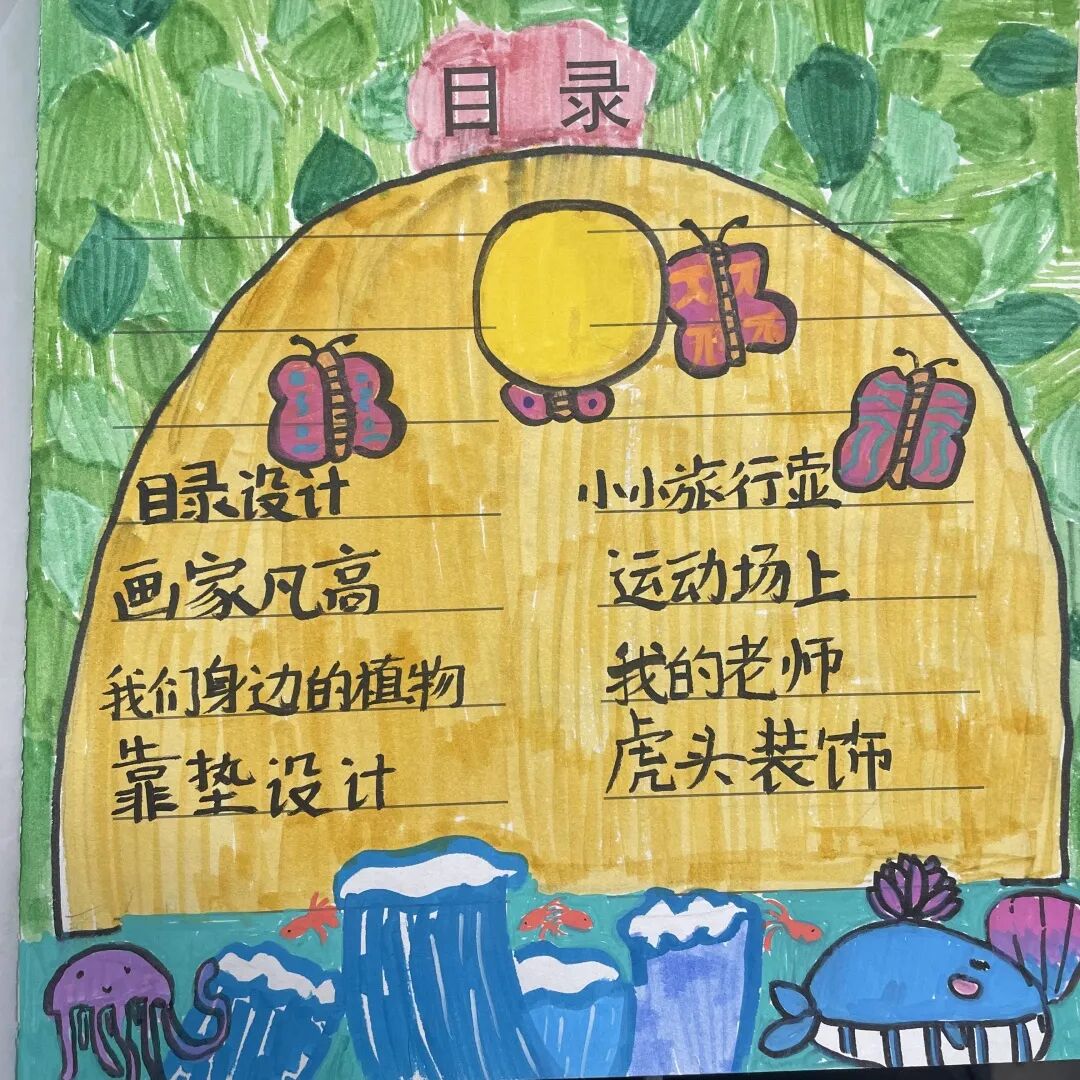 目 录
目录设计
画家凡高
我们身边的植物
靠垫设计
小小旅行壶
运动场上
我的老师
虎头装饰